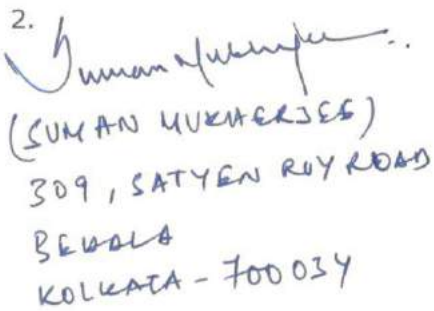 2.
Suman Mukherjee
(SUMAN MUKHERJEE)
309, SATYEN ROY ROAD
BEHALA
KOLKATA - 700034